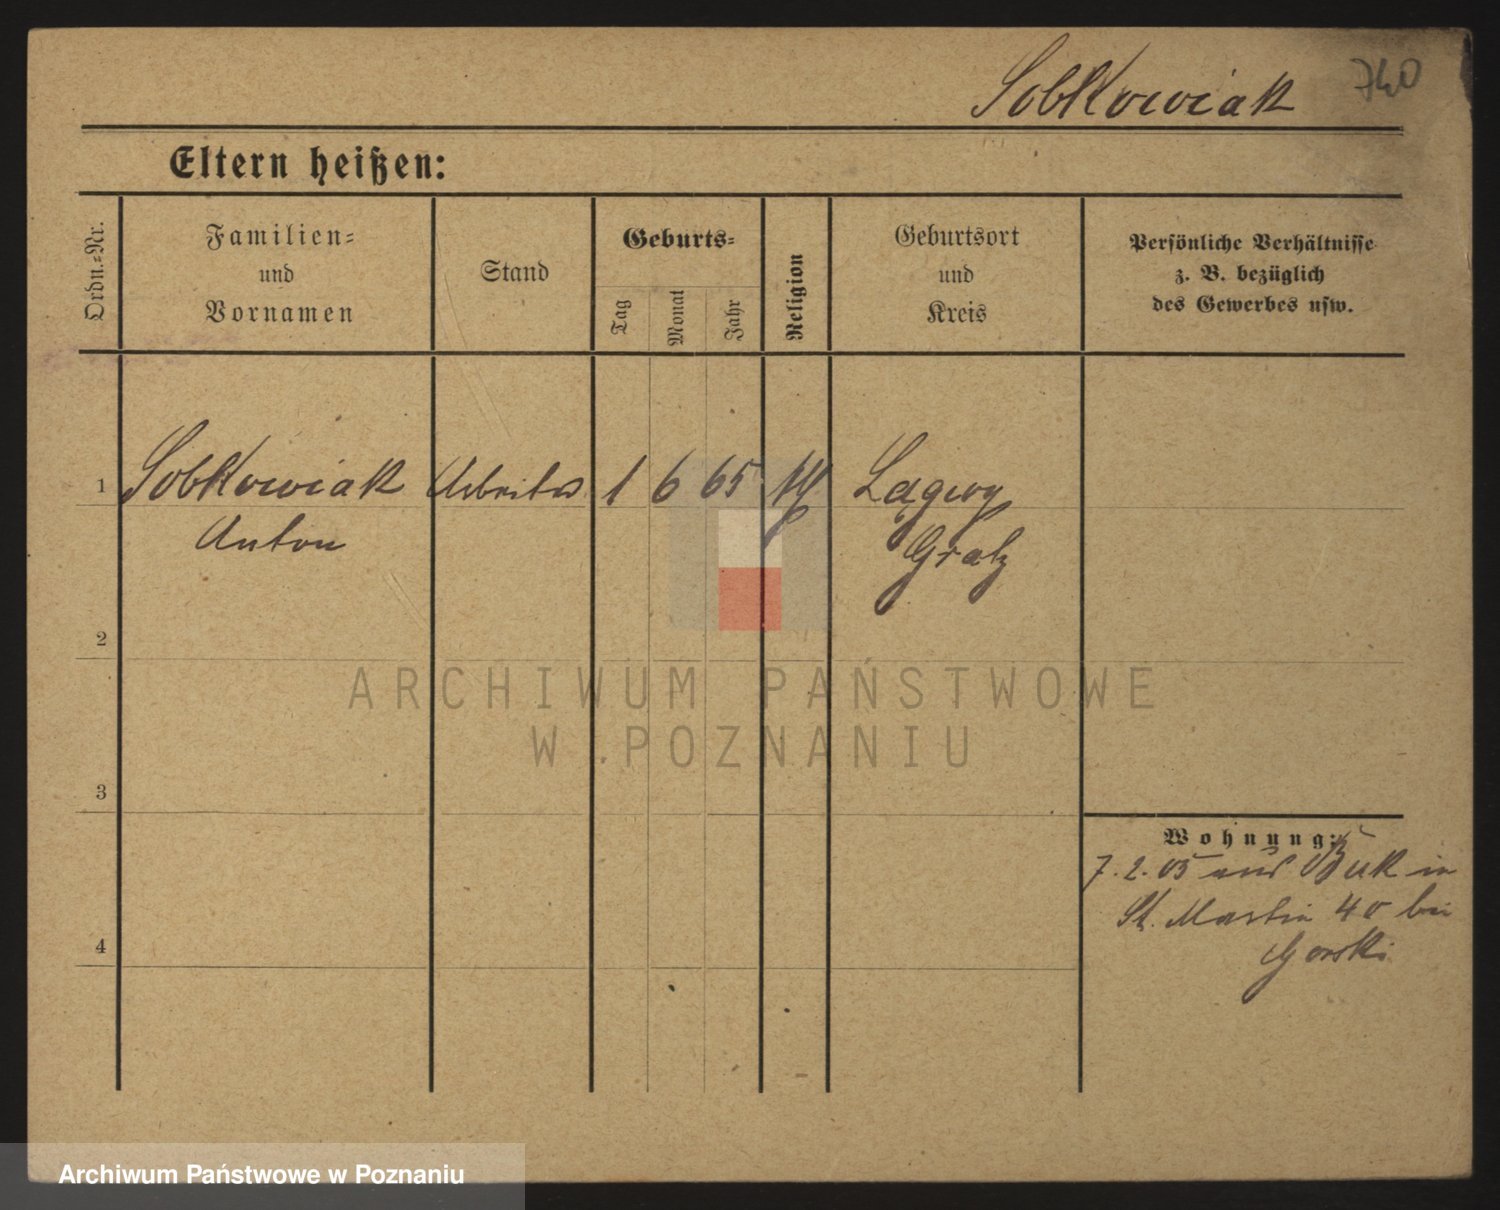 Sobkowiak 740
Eltern heißen:
Ordn.=Nr.
Familien=
und
Vornamen
Stand
Geburts=
Tag
Monat
Jahr
Religion
Geburtsort
und
Kreis
Persönliche Verhältnisse
z. B. bezüglich
des Gewerbes usw.
1 Sobkowiak Arbeiter 1 6 65 Łagwy
Anton Grätz
2
3
4
Wohnung:
7. 2. 05 aus Buk in
St. Martin 40 bei
Gorski
ARCHIWUM PAŃSTWOWE
W POZNANIU
Archiwum Państwowe w Poznaniu